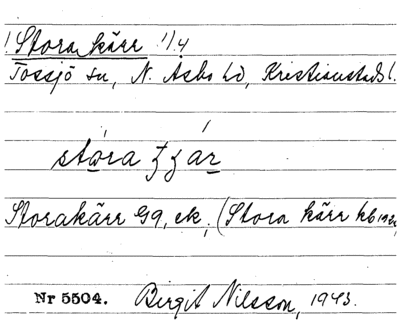 ! Stora kärr 1/4
Tossjö sn, N. Åsbo hd, Kristianstads l.
stóra ʒʒár
Storakärr Gg, ek; (Stora kärr kb
Nr 5504. Birgit Nilsson, 1943.